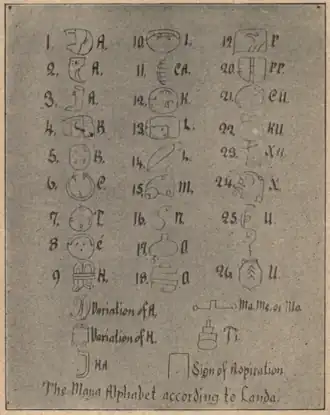 1. A.
2. A.
3. A.
4. B.
5. B.
6. C.
7. T.
8 É
9 H.
10. I.
11. CA.
12. K.
13. L.
14. L.
15. M.
16. N.
17. O
18. O.
19. P
20. PP.
21. CU.
22. KU
23. XU.
24. X.
25. U.
26. U.
Variation of A.
Variation of H.
HA
Ma. Me. or Mo.
TI.
Sign of Aspiration
The Maya Alphabet according to Landa.